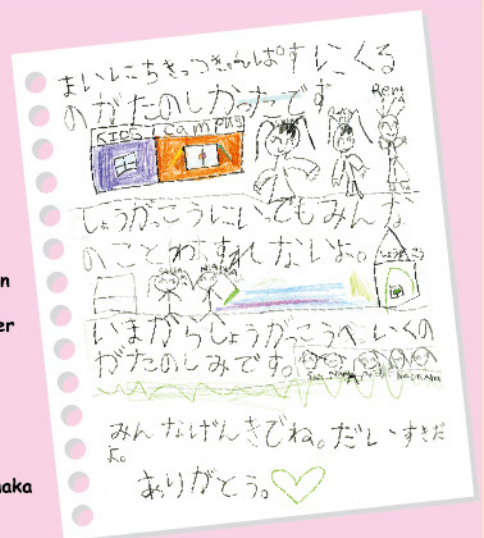 まいにちきっずきゃんぱすにくる
のがたのしかったです
KIDS campus
しょうがっこうにいってもみんな
のことわすれないよ。
いまからしょうがっこうへいくの
がたのしみです。
みんなげんきでね。だいすきだ
よ。
ありがとう。
n
er
naka